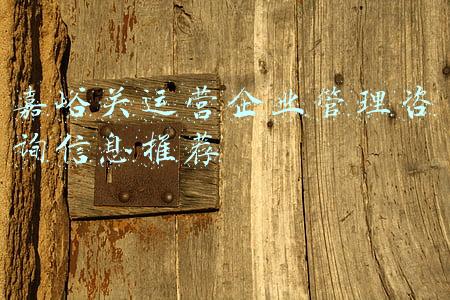 嘉峪关运营企业管理咨
询信息推荐